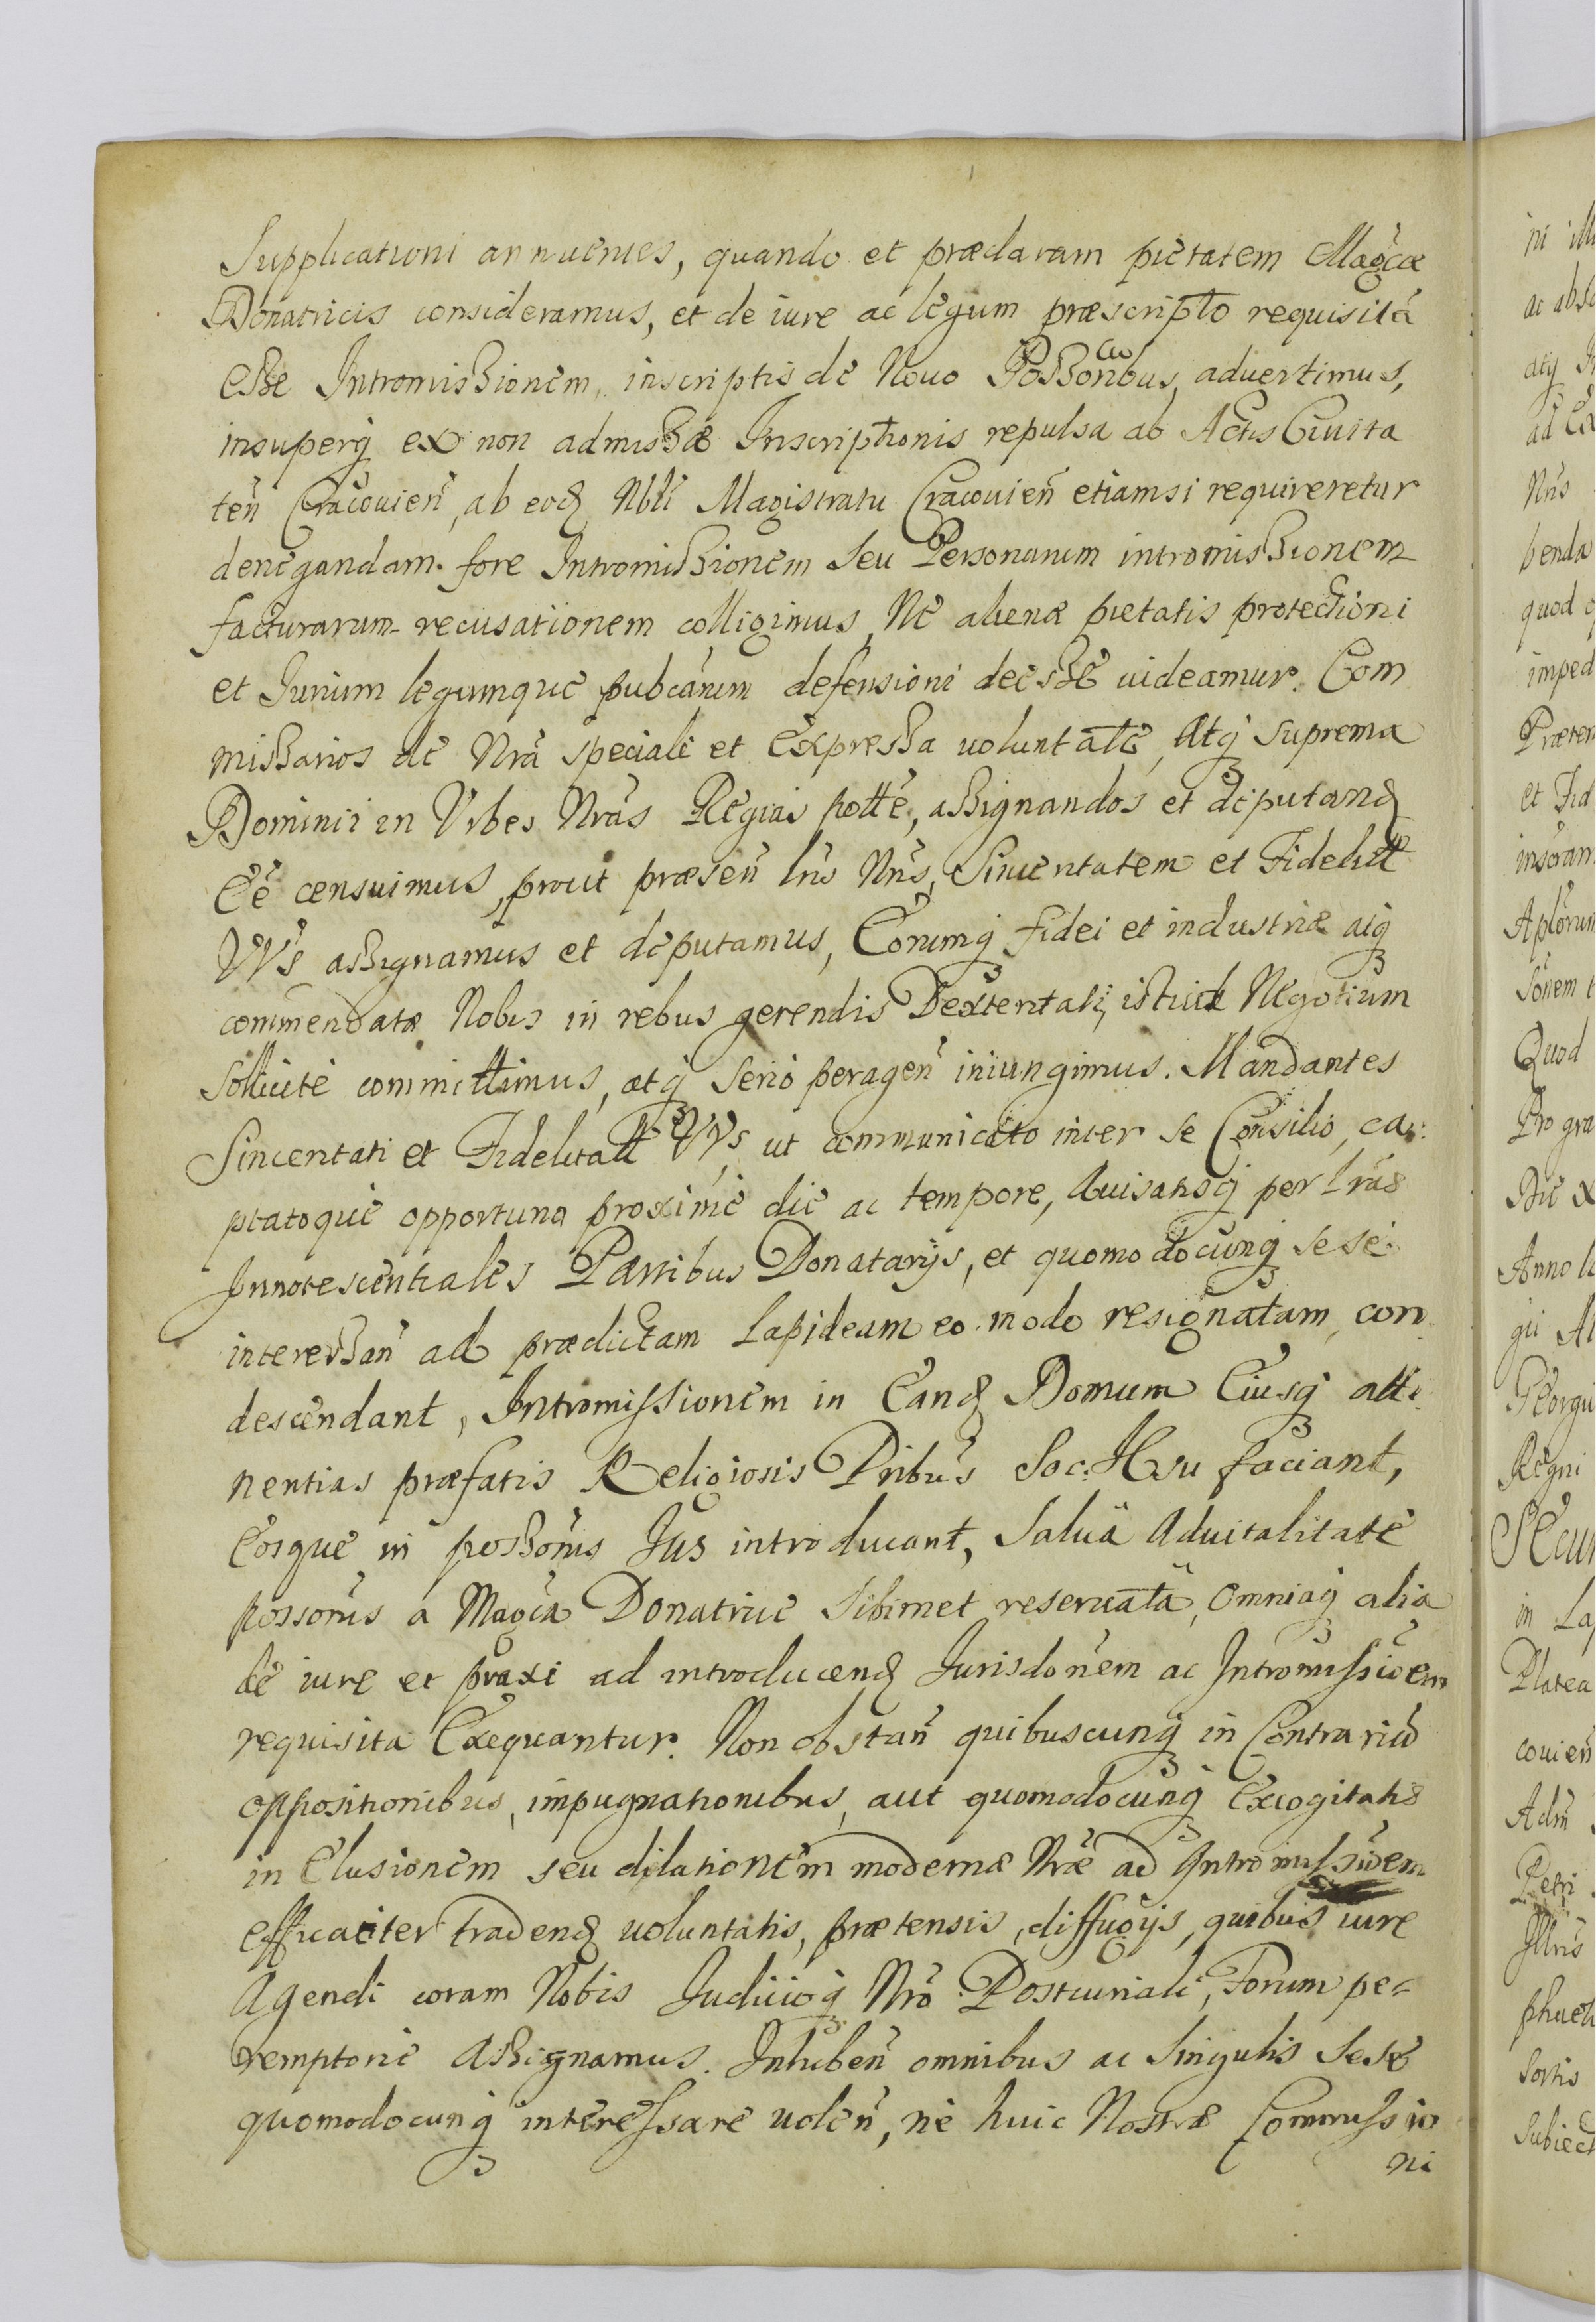 Supplicationi annuentes, quando et præclaram pietatem Magcæ
Donatricis consideramus, et de iure ac legum præscripto requisitã
esse Intromissionem, inscriptis de Nouo Possoribus, aduertimus,
insuperq ex non admissæ Inscriptionis repulsa ab Actis Ciuita
teñ Cracouieñ, ab eod Nbli Magistratu Cracouieñ etiamsi requireretur
denegandam fore Intromissionem seu Personarum intromissionem
facturarum recusationem colligimus, Ne alienæ pietatis protectioni
et Iurium legumque pubcarum defensioni deesse uideamur. Com
missarios de Nrã speciali et Expressa uoluntate, Atq suprema
Dominii in Vrbes Nras Regias potte, assignandos et deputand
Eẽ censuimus, prout præseñ lris Nris, Sinceritatem et Fidelitt
VVs assignamus et deputamus, Eorumq fidei et industriæ atq
commendatæ Nobis in rebus gerendis Dexteritati, istud Negotium
sollicite committimus, atq serio perageñ iniungimus. Mandantes
Sinceritati et Fidelitatt VVs, ut communicato inter se Consilio, ca
ptatoque opportuno proxime die ac tempore, Auisatisq per lras
Innotescentiales Partibus Donatarijs, et quomodocunq sese
interessañ ad prædictam Lapideam eo modo resignatam, con
descendant, Intromissionem in Eand Domum Eiusq atti
nentias præfatis Religiosis Pribus Soc: Hsu faciant,
Eosque in possonis Ius introducant, saluâ Aduitalitate
possonis a Magca Donatrice sibimet reseruata, omniaq alia
de iure et praxi ad introducend Iurisdonem ac Intromissioem
requisita Exequantur. Non obstañ quibuscunq in Contrariũ
oppositionibus, impugnationibus, aut quomodocunq Excogitatis
in Elusionem seu dilationem modernæ Nræ ad Intromissioem
efficaciter tradend uoluntatis, prætensis, diffugijs, quibus iure
Agendi coram Nobis Iudicioq Nro Postcuriali, Forum pe-
remptorie Assignamus. Inhibeñ omnibus ac singulis sese
quomodocunq interessare uoleñ, ne huic Nostræ Commissio
ni